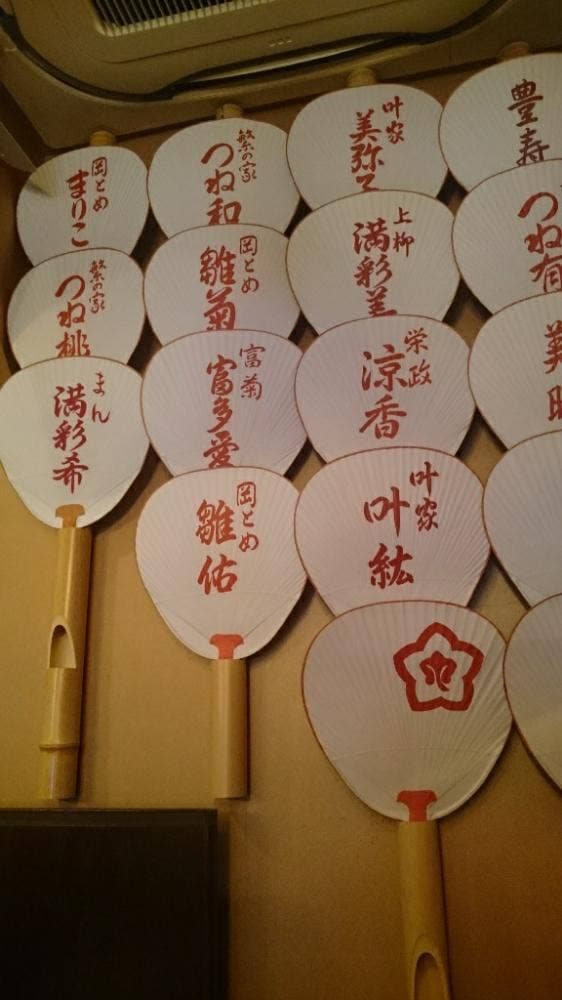 岡とめ
まりこ
繁の家
つね桃
まん
満彩希
繁の家
つね和
岡とめ
雛菊
富菊
富多愛
岡とめ
雛佑
叶家
美弥
上柳
満彩美
栄政
涼香
叶家
叶紘
豊寿
つね有